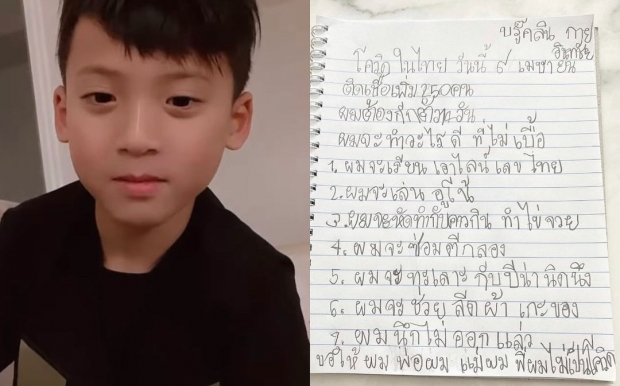 บรู๊คลิน กาย
อินทร์
โควิดในไทย วันนี้ ๙ เมษายน
ติดเชื้อเพิ่ม 250คน
ผมต้องกักตัว 14 วัน
ผมจะทำอะไรดี ที่ไม่เบื้อ
1. ผมจะเรียน เอาไลน์ เลข ไทย
2. ผมจะเล่น อูโน้
3. ผมจะหัดทำกับคาวกิน ทำไข่จวย
4. ผมจะซ่อมตีกลอง
5. ผมจะทะเลาะ กับปีน่านิดนึง
6. ผมจะช่วย ลีดผ้า เกะของ
7. ผมนึกไม่ออกแล่ว
ขอให้ ผม พ่อผม แม่ผม พี่ผมไม่เป็นโควิด